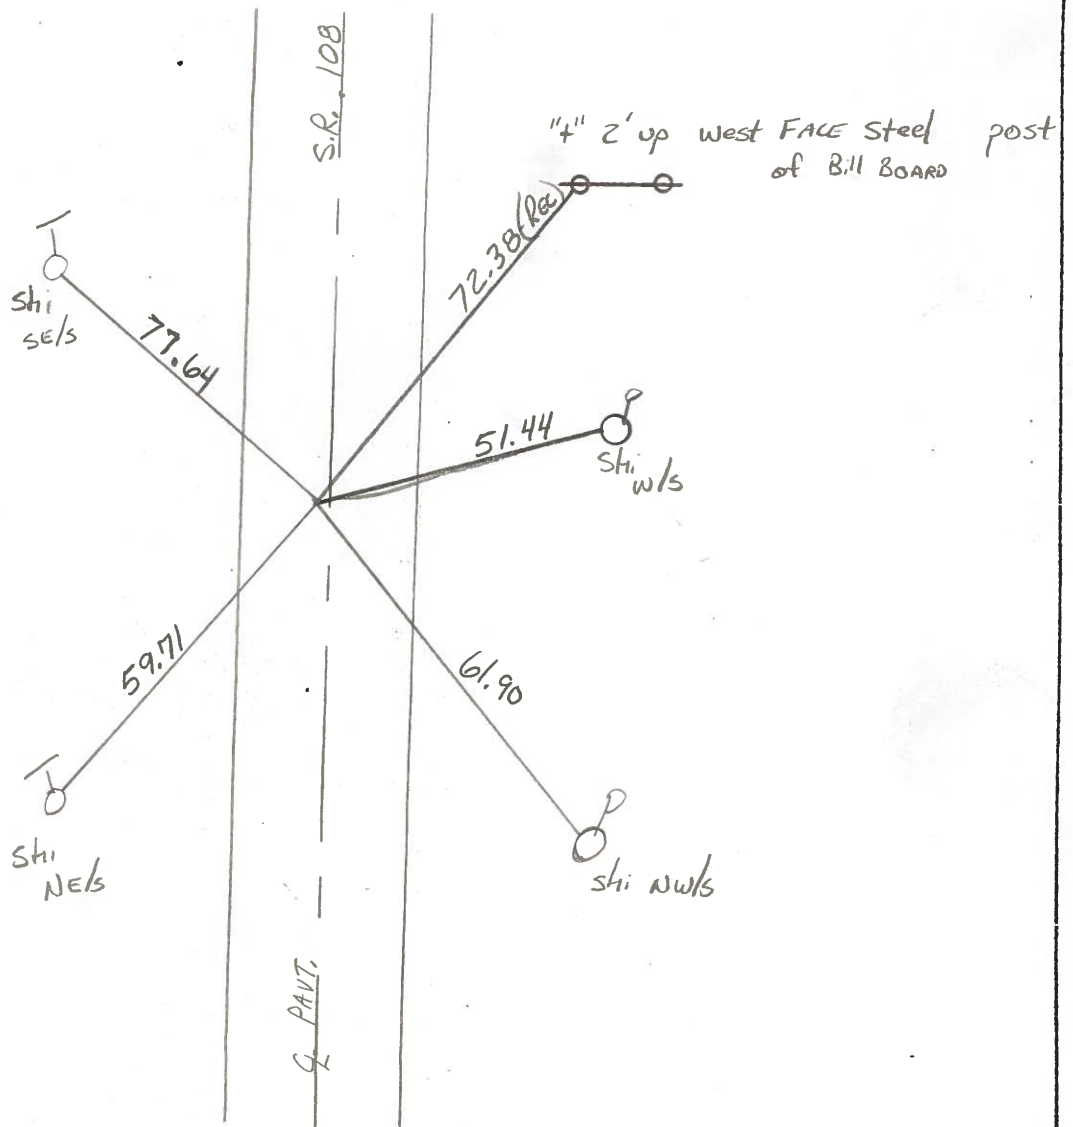 S.R. 108
"+" 2' up west FACE Steel post
of Bill BOARD
72.38(REC)
Shi
SE/s
77.64
51.44
Shi
W/s
59.71
61.90
Shi
NE/s
Shi NW/s
℄ PAVT.